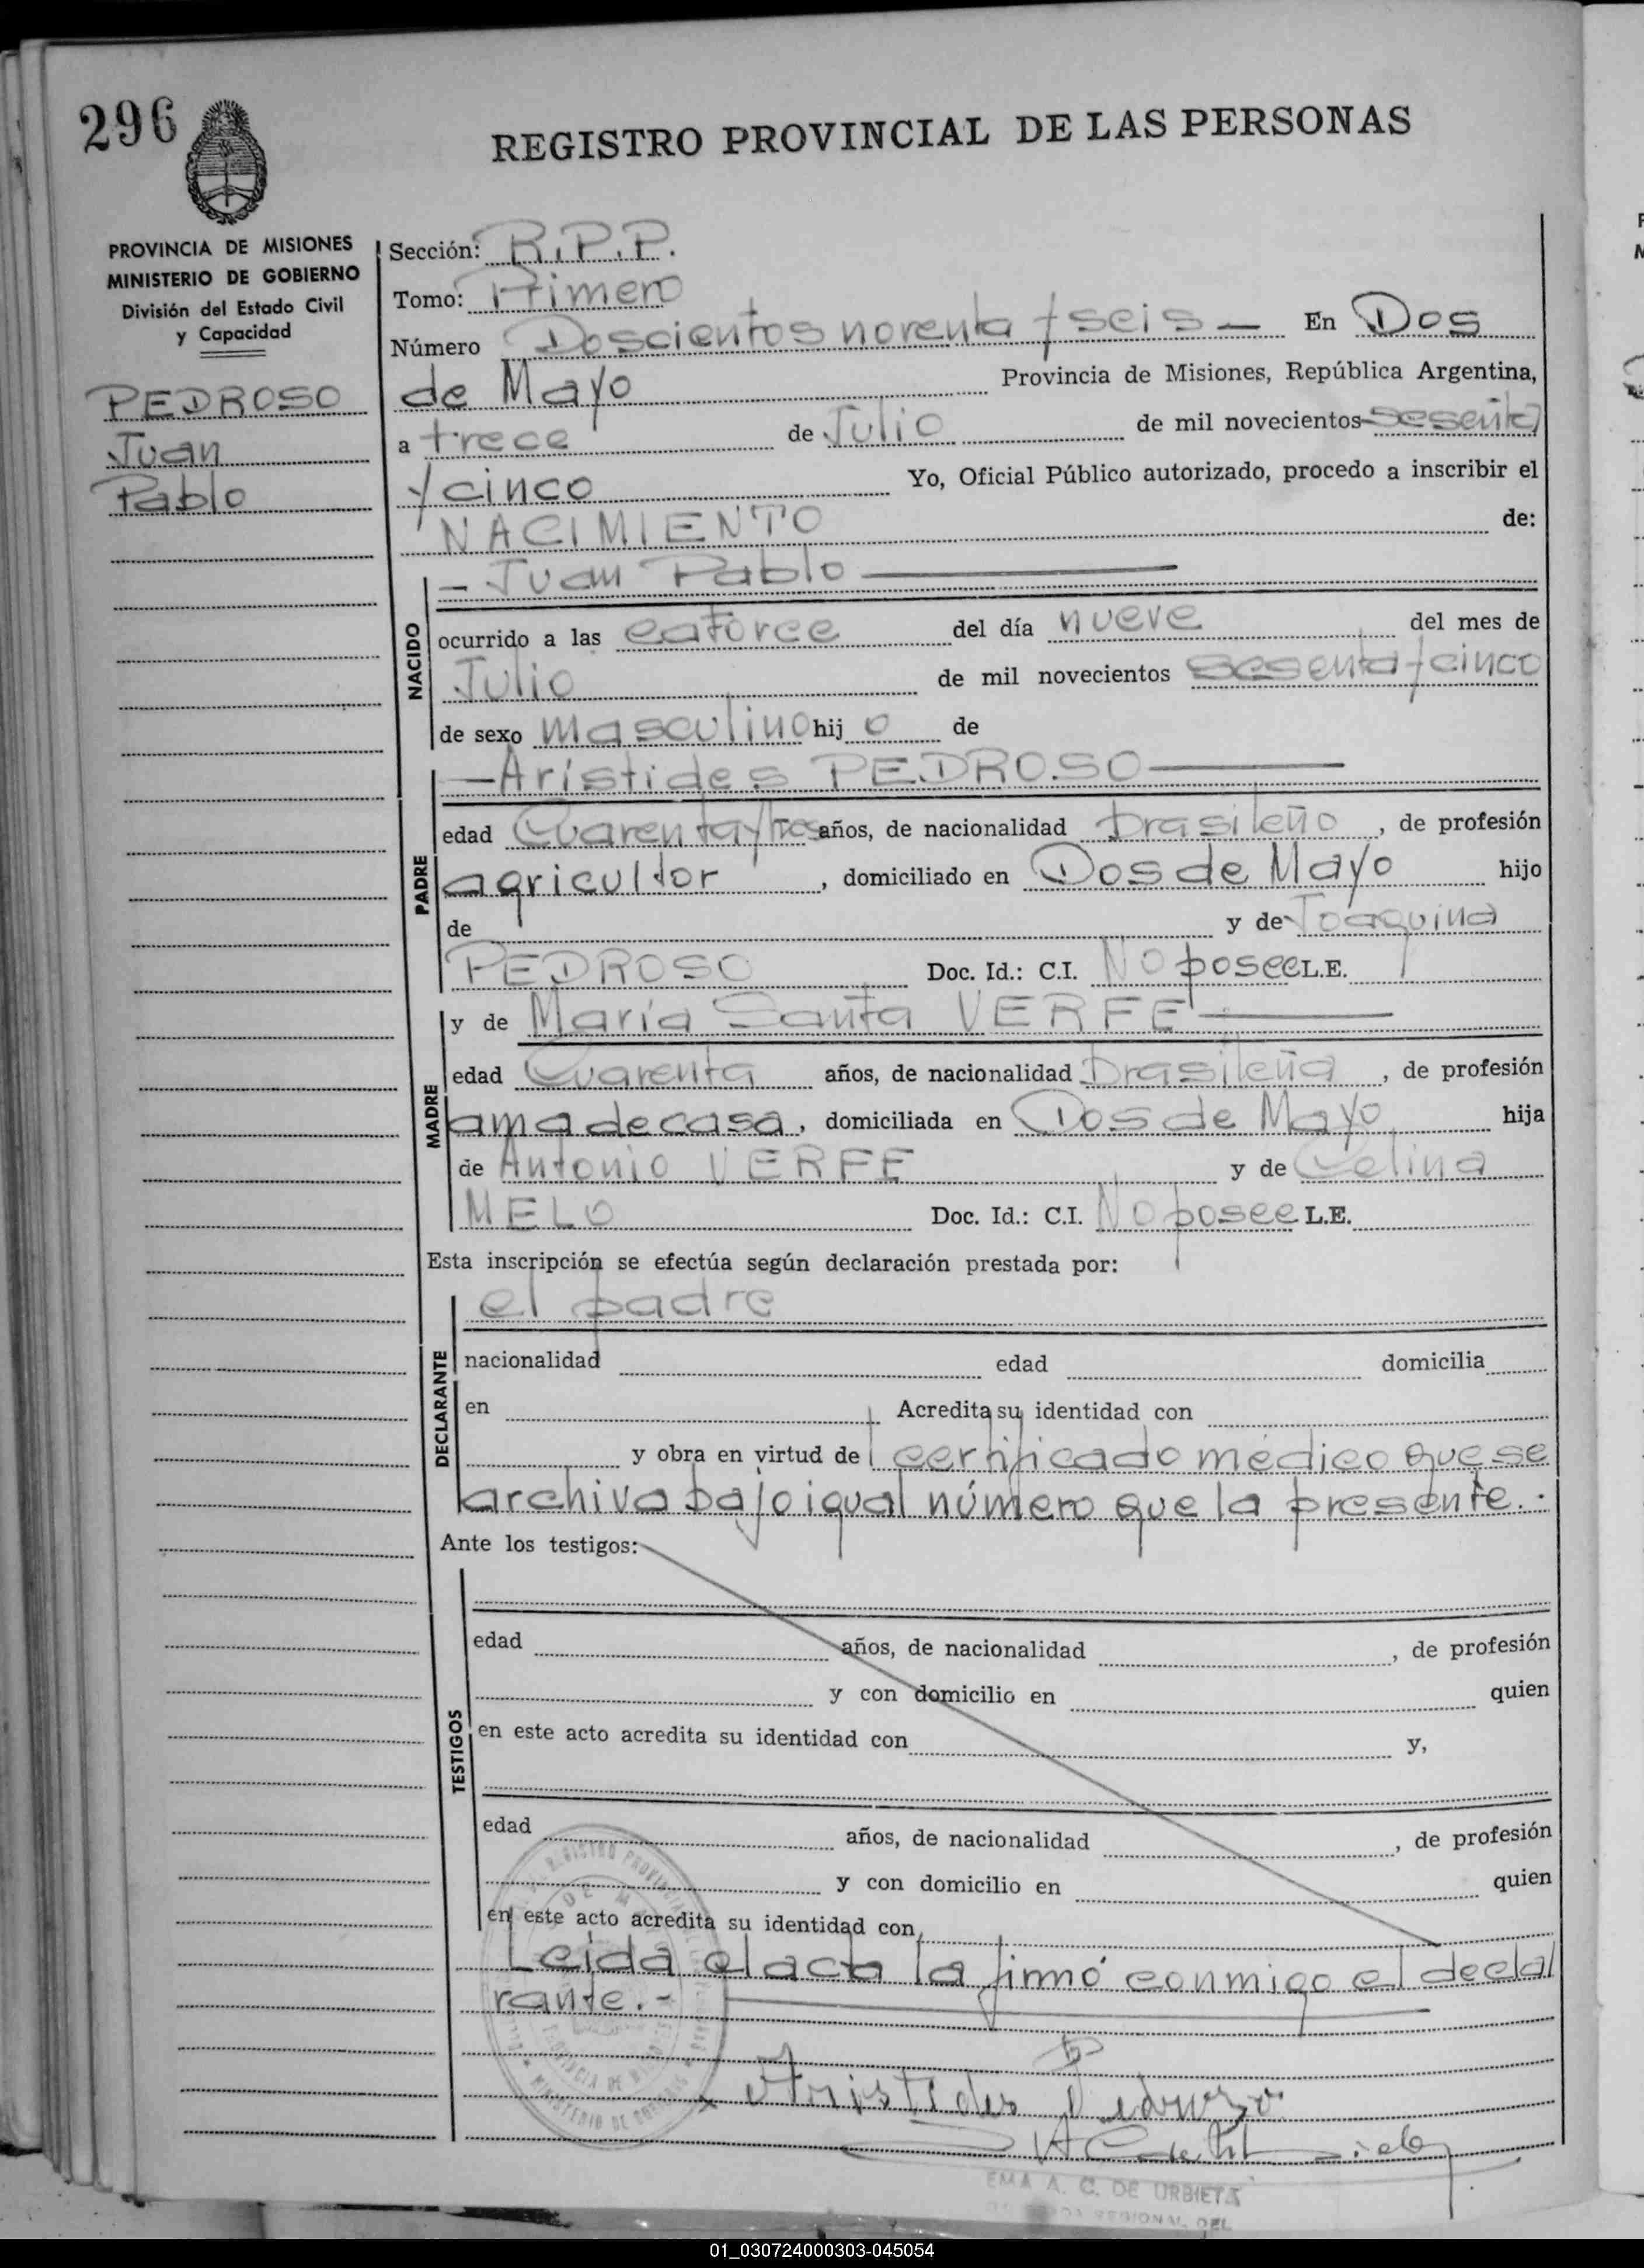 296
REGISTRO PROVINCIAL DE LAS PERSONAS
PROVINCIA DE MISIONES
MINISTERIO DE GOBIERNO
División del Estado Civil
y Capacidad
PEDROSO
Juan
Pablo
Sección: R.P.P.
Tomo: Primero
Número Doscientos noventa y seis — En Dos
de Mayo Provincia de Misiones, República Argentina,
a trece de Julio de mil novecientos sesenta
y cinco Yo, Oficial Público autorizado, procedo a inscribir el
NACIMIENTO de:
NACIDO
— Juan Pablo —
ocurrido a las catorce del día nueve del mes de
Julio de mil novecientos sesenta y cinco
de sexo masculino hijo de
PADRE
— Arístides PEDROSO —
edad Cuarenta y tres años, de nacionalidad brasileño, de profesión
agricultor, domiciliado en Dos de Mayo hijo
de y de Joaquina
PEDROSO Doc. Id.: C.I. No posee L.E.
MADRE
y de María Santa VERFE —
edad Cuarenta años, de nacionalidad brasileña, de profesión
ama de casa, domiciliada en Dos de Mayo hija
de Antonio VERFE y de Celina
MELO Doc. Id.: C.I. No posee L.E.
Esta inscripción se efectúa según declaración prestada por:
DECLARANTE
el padre
nacionalidad edad domicilia
en Acredita su identidad con
y obra en virtud del certificado médico que se
archiva bajo igual número que la presente.-
Ante los testigos:
TESTIGOS
edad años, de nacionalidad , de profesión
y con domicilio en quien
en este acto acredita su identidad con y,
edad años, de nacionalidad , de profesión
y con domicilio en quien
en este acto acredita su identidad con
Leída el acta la firmó conmigo el decla
rante.-
Aristides Pedrozo
EMA A. C. DE URBIETA
REGIONAL DEL
01_030724000303-045054